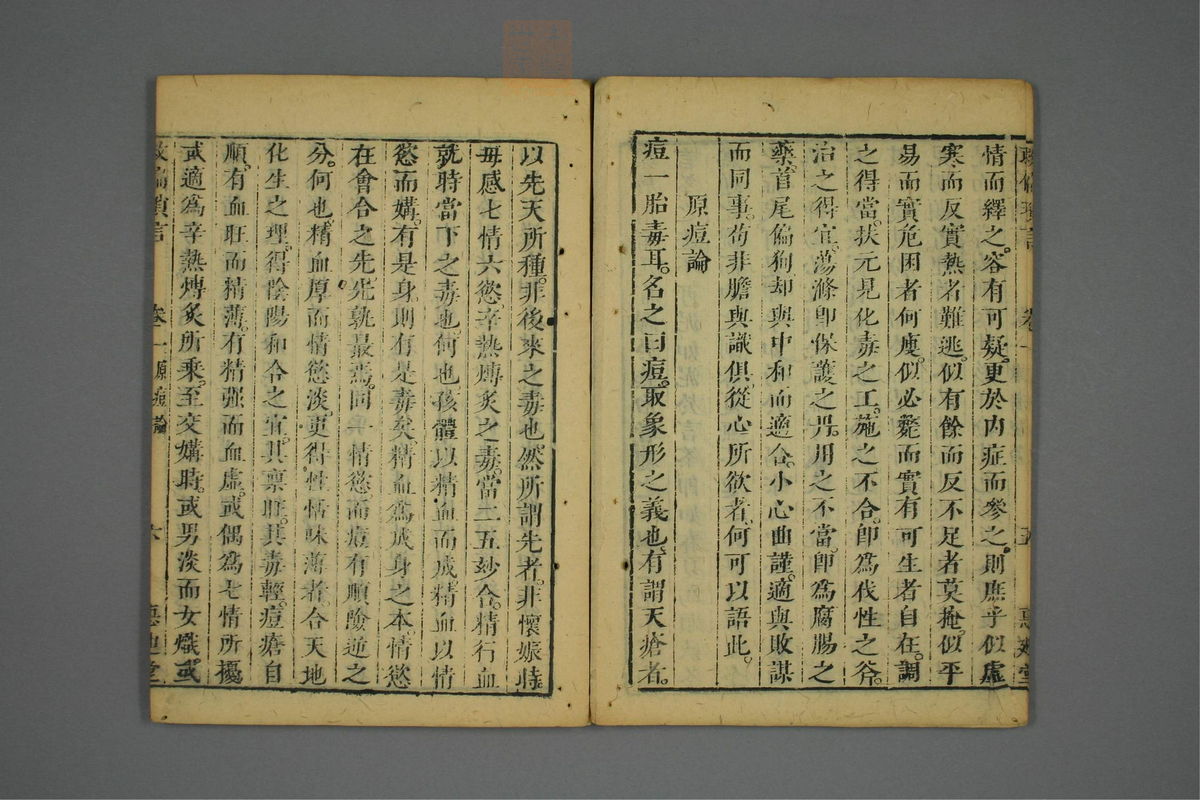 情而繹之。容有可疑。更於內症而參之。則庶乎似虛
寒而反實熱者難逃。似有餘而反不足者莫掩。似平
易而實危困者何廋。似必斃而實有可生者自在。調
之得當。扶元見化毒之工。施之不合。卽爲伐性之斧。
治之得宜。蕩滌卽保護之丹。用之不當。卽爲腐腸之
藥。首尾偏狥。却與中和而適合。小心曲謹。適與敗謀
而同事。苟非膽與識俱。從心所欲者。何可以語此。
原痘論
痘一胎毒耳。名之曰痘。取象形之義也。有謂天瘡者。
以先天所種。非後來之毒也。然所謂先者。非懷娠時
毋感七情六慾。辛熱煿炙之毒。當二五妙合。精行血
就時當下之毒也。何也。孩體以精血而成。精血以情
慾而媾。有是身。則有是毒矣。精血爲成身之本。情慾
在會合之先。先孰最焉。同一情慾。而痘有順險逆之
分。何也。精血厚而情慾淡。更得性恬味薄者。合天地
化生之理。得陰陽和合之宜。其禀旺。其毒輕。痘瘡自
順。有血旺而精薄。有精强而血虛。或偶爲七情所擾
或適爲辛熱煿炙所乘。至交媾時。或男淡而女熾。或
卷一 原痘論 六